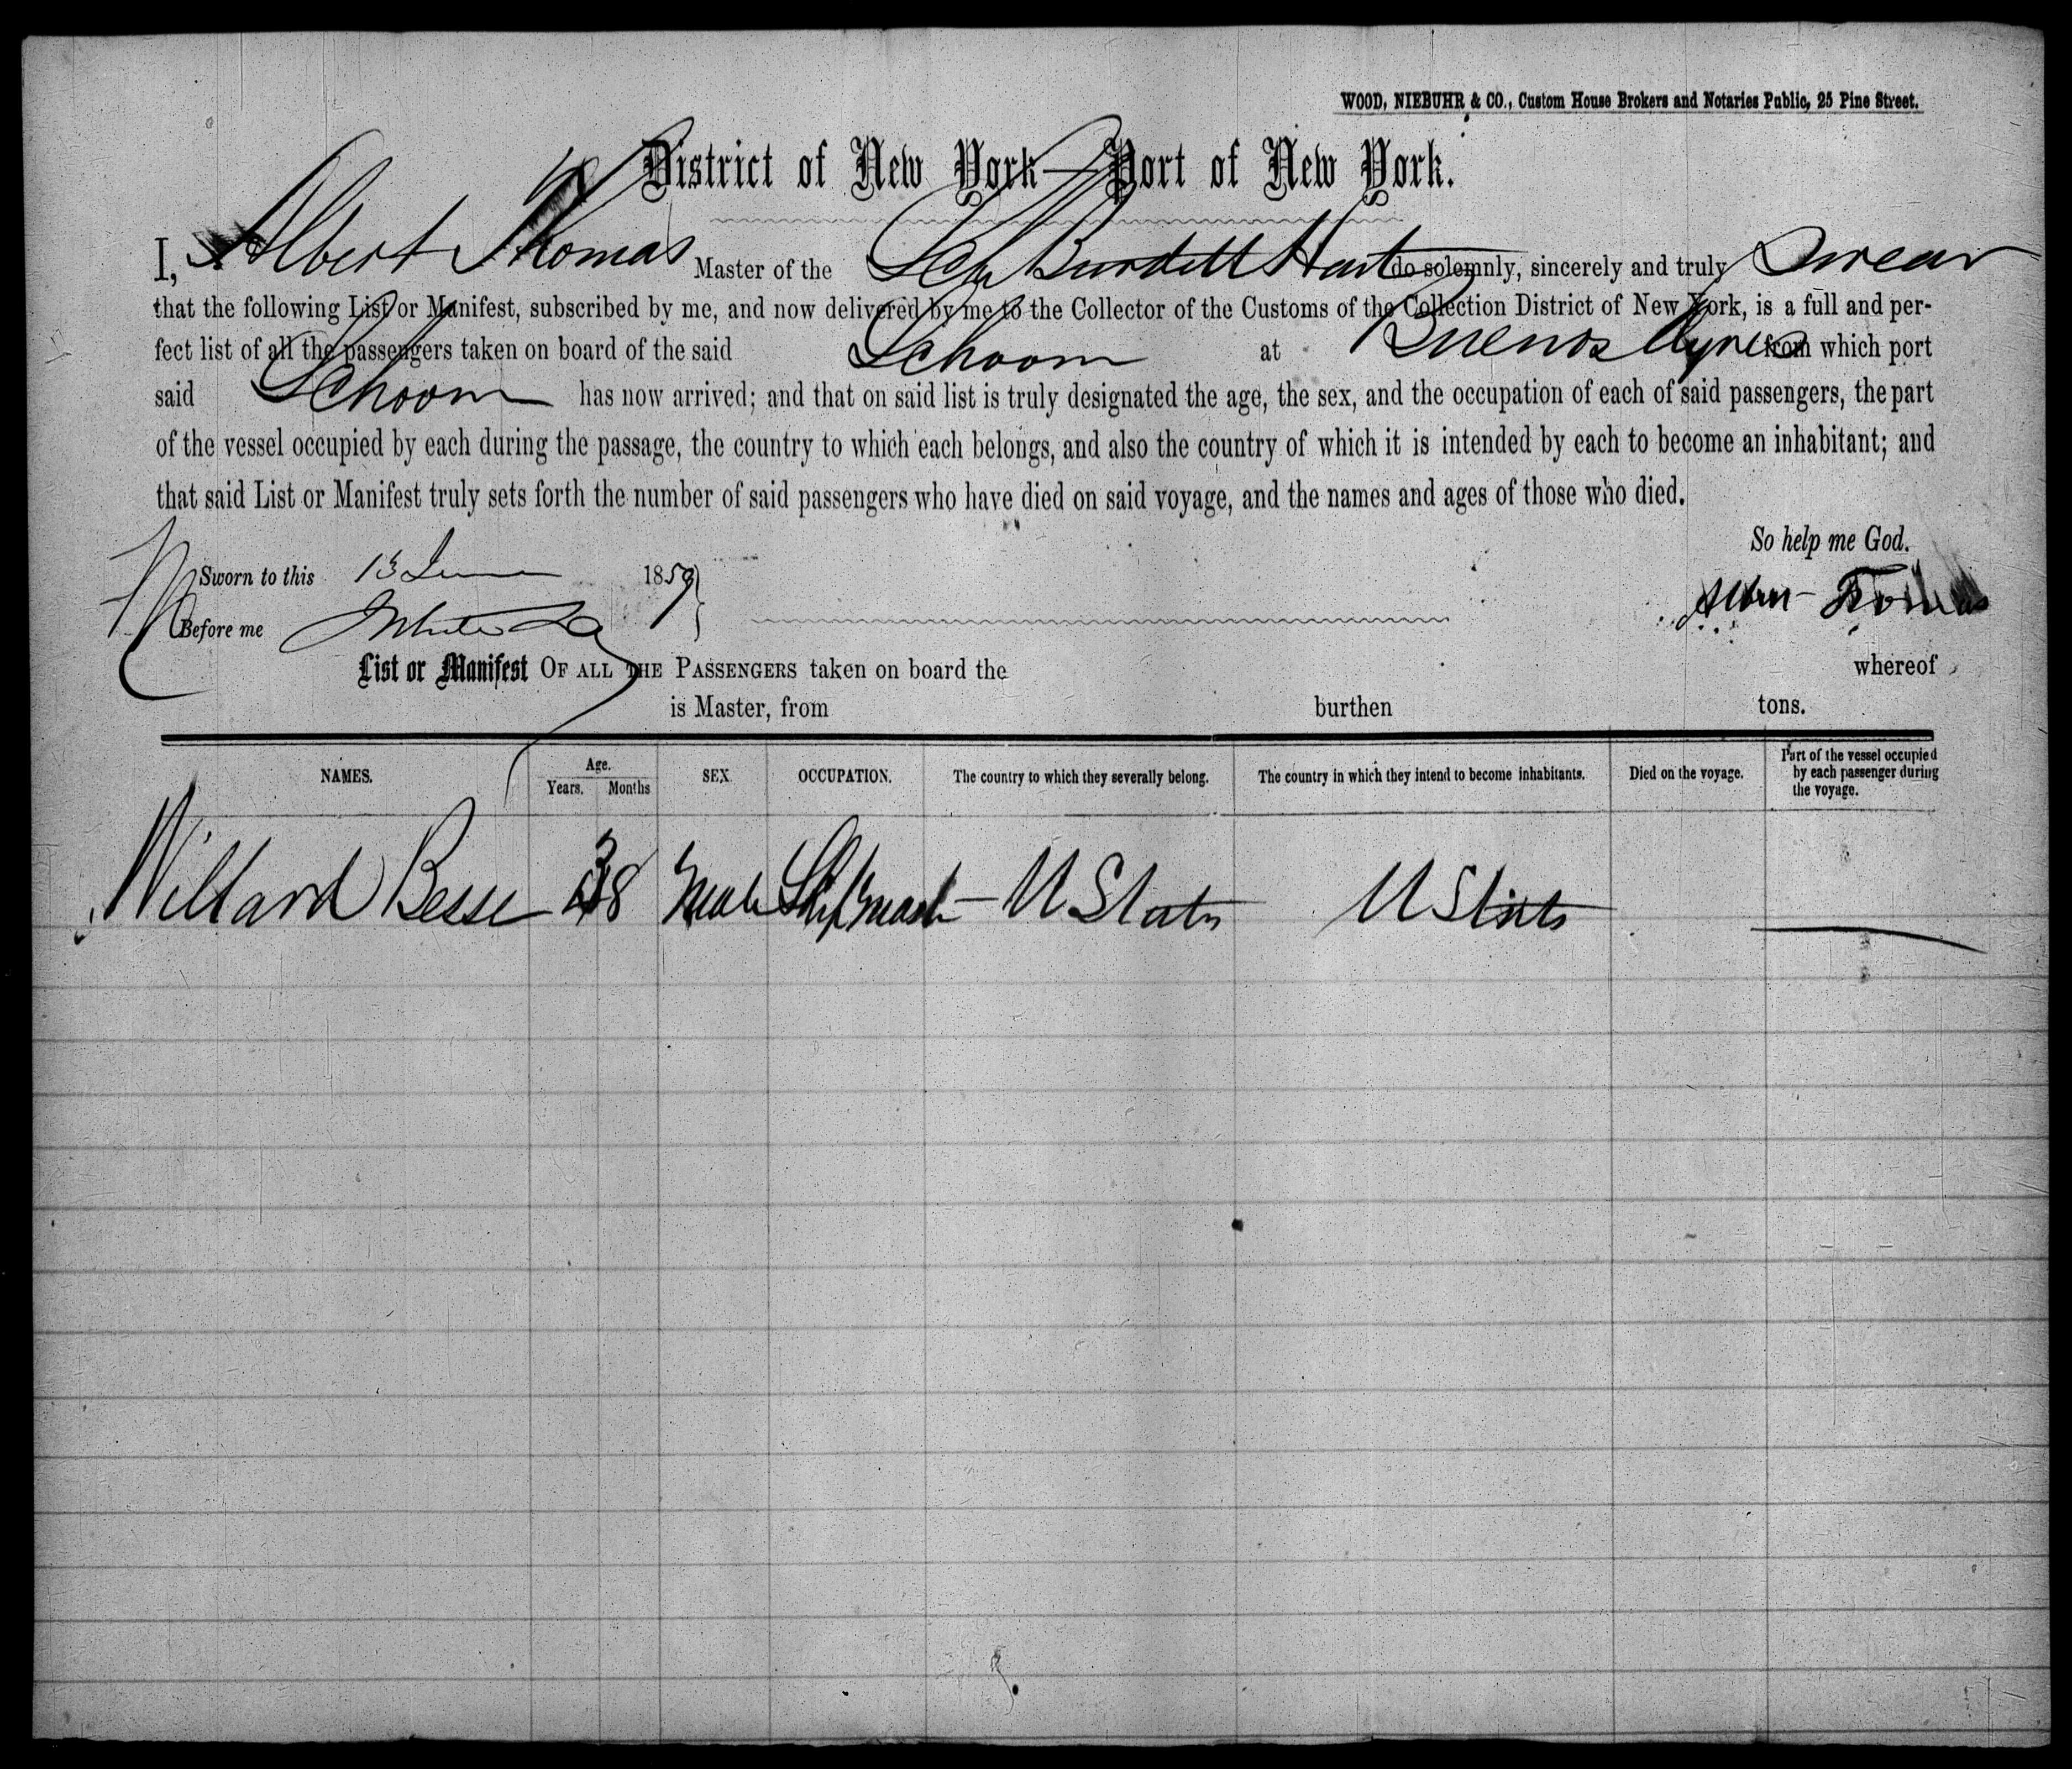 WOOD, NIEBUHR & CO., Custom House Brokers and Notaries Public, 25 Pine Street.
District of New York—Port of New York.
I, Albert Thomas Master of the Schr Burdett Hart do solemnly, sincerely and truly Swear
that the following List or Manifest, subscribed by me, and now delivered by me to the Collector of the Customs of the Collection District of New York, is a full and per-
fect list of all the passengers taken on board of the said Schoom at Buenos Ayres from which port
said Schoom has now arrived; and that on said list is truly designated the age, the sex, and the occupation of each of said passengers, the part
of the vessel occupied by each during the passage, the country to which each belongs, and also the country of which it is intended by each to become an inhabitant; and
that said List or Manifest truly sets forth the number of said passengers who have died on said voyage, and the names and ages of those who died.
So help me God.
Sworn to this 13 June 1859
Before me
List or Manifest OF ALL THE PASSENGERS taken on board the whereof
is Master, from burthen tons.
NAMES. Age. Years. Months SEX. OCCUPATION. The country to which they severally belong. The country in which they intend to become inhabitants. Died on the voyage. Part of the vessel occupied by each passenger during the voyage.
Willard Besse 38 Male Ship Mast U States U States